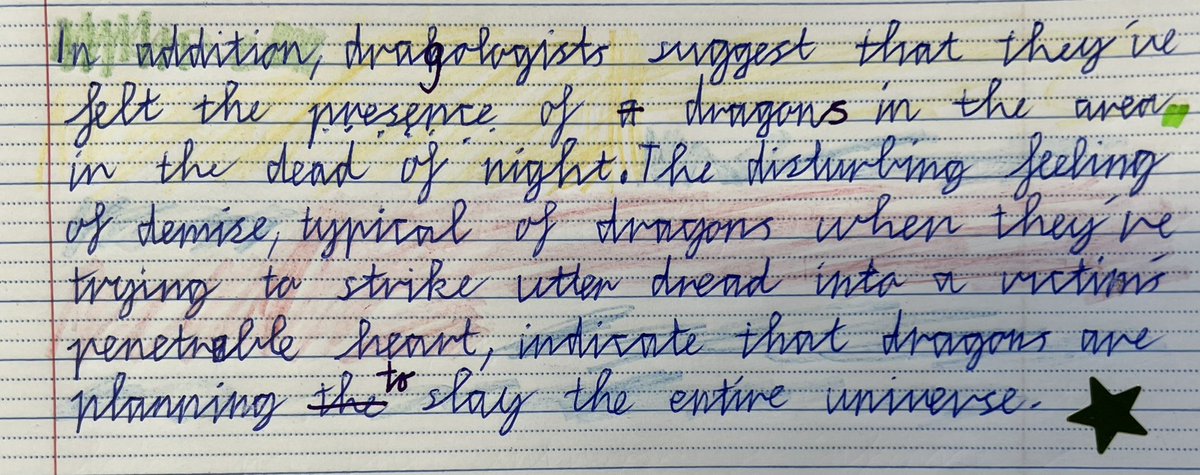 In addition, dragologists suggest that they've
felt the presence of a dragons in the area
in the dead of night. The disturbing feeling
of demise, typical of dragons when they're
trying to strike utter dread into a victim's
penetrable heart, indicate that dragons are
planning the to slay the entire universe.